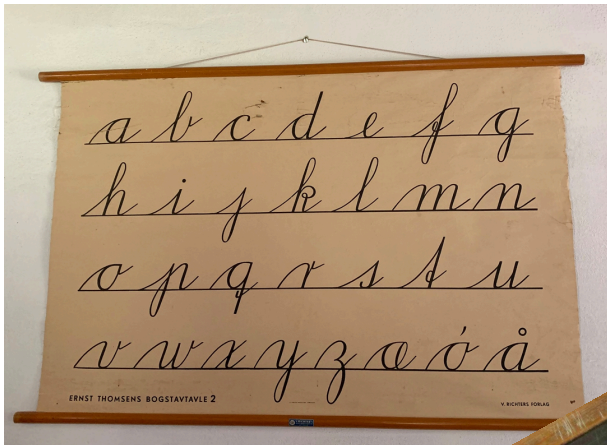 a b c d e f g
h i j k l m n
o p q r s t u
v w x y z æ ø å
ERNST THOMSENS BOGSTAVTAVLE 2
V. RICHTERS FORLAG